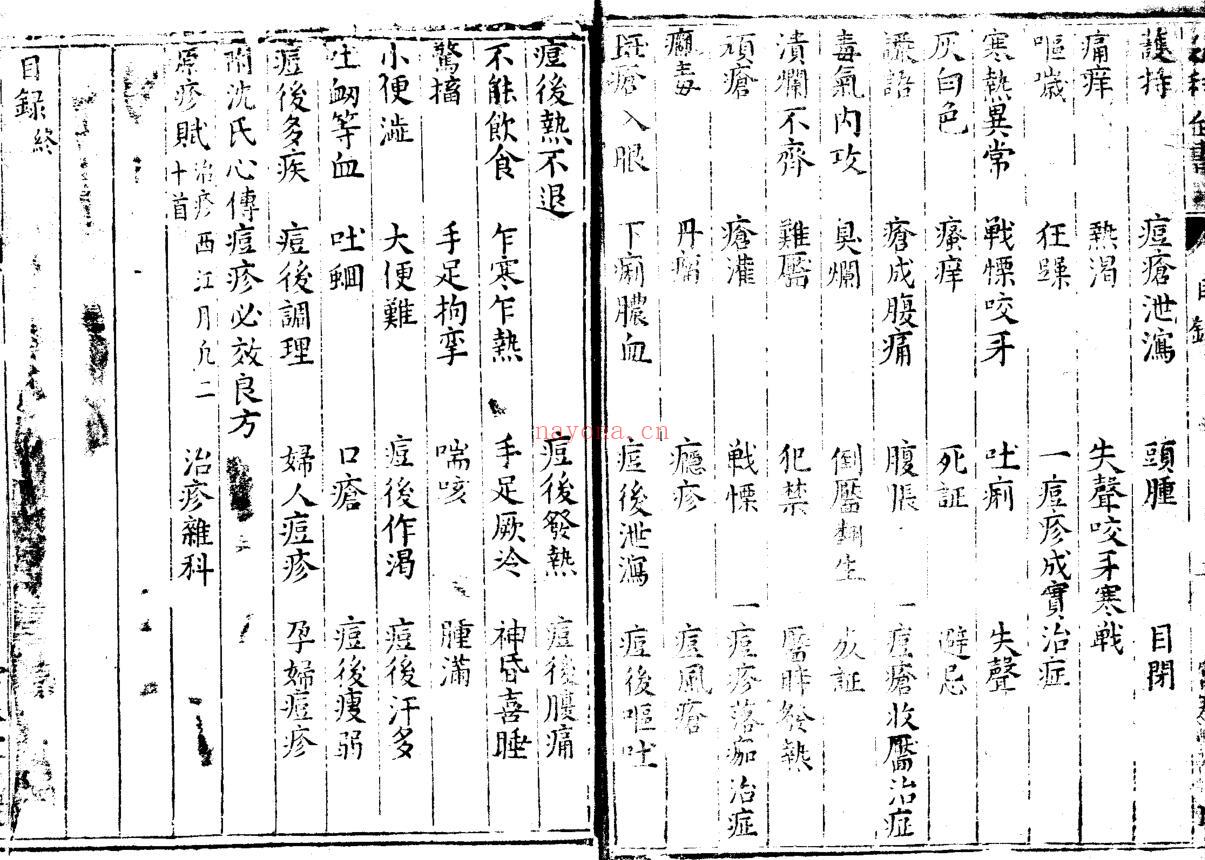 護持　痘瘡泄瀉　頭腫　目閉
痛痒　熱渴　失聲咬牙寒戰
嘔噦　狂躁　一痘疹成實治症
寒熱異常　戰慄咬牙　吐痢　失聲
灰白色　癢痒　死証　避忌
譫語　瘡成腹痛　腹脹　一痘瘡收靨治症
毒氣內攻　臭爛　倒靨　生
潰爛不齊　難靨　犯禁　靨時發熱
頑瘡　瘡瀖　戰慄　一痘疹落痂治症
癰毒　丹瘤　癮疹　痘風瘡
斑瘡入眼　下痢膿血　痘後泄瀉　痘後嘔吐
痘後熱不退　痘後發熱　痘後腹痛
不能飲食　乍寒乍熱　手足厥冷　神昏喜睡
驚搐　手足拘攣　喘咳　腫滿
小便澁　大便難　痘後作渴　痘後汗多
吐血衂等血　吐蛔　口瘡　痘後瘦弱
痘後多疾　痘後調理　婦人痘疹　孕婦痘疹
附沈氏心傳痘疹必效良方
原疹賦　治疹西江月凡二十首　治疹雜科
目録終
nayona.cn